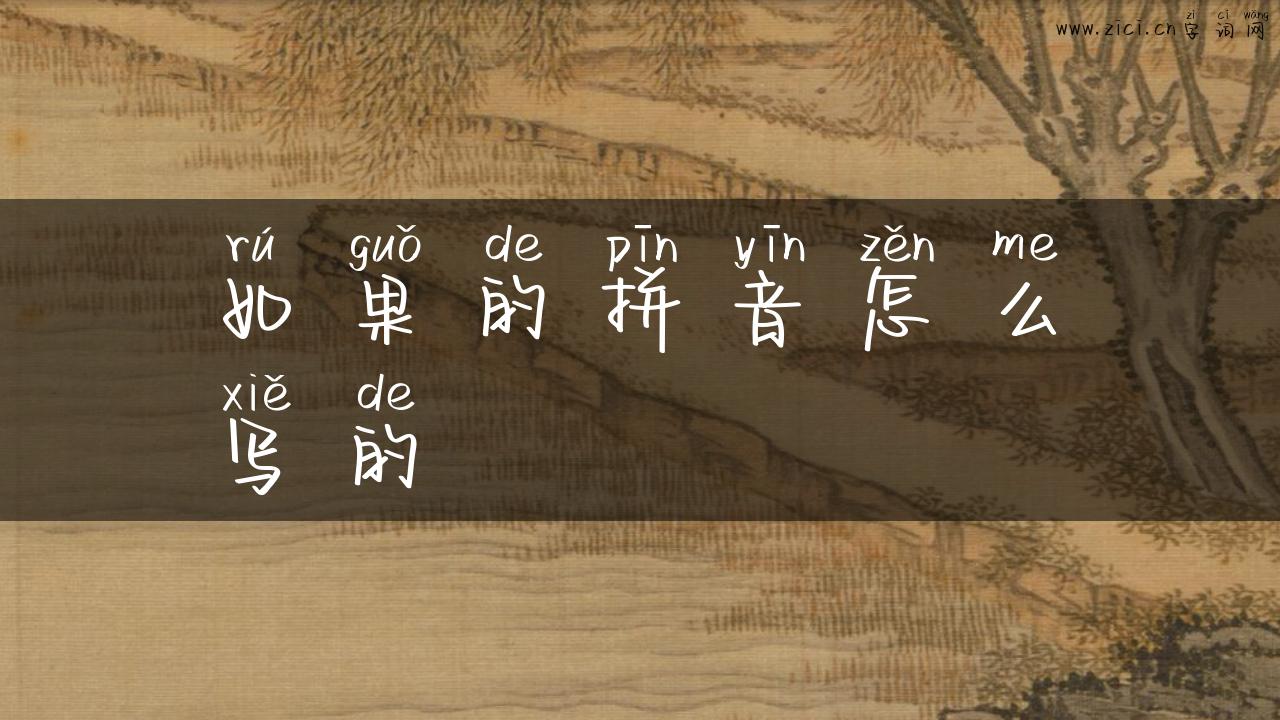 zì cí wǎng
www.zici.cn字词网
rú guǒ de pīn yīn zěn me
如果的拼音怎么
xiě de
写的